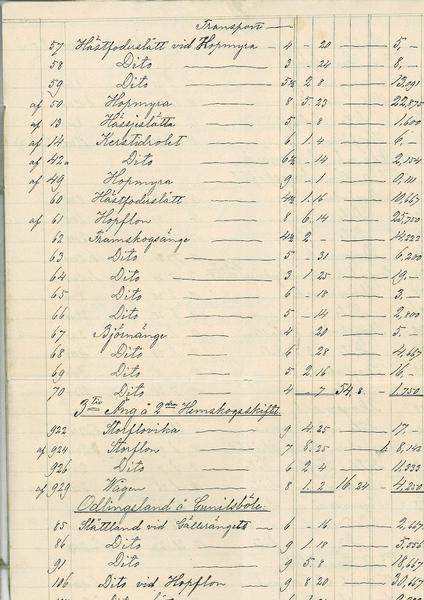 Transport —
57 Hästfoderslätt vid Hopmyra — 4 — 20 — 5, —
58 Dito — 3 — 24 — 8, —
59 Dito — 5½ 2. 8 — 13,091
af 50 Hopmyra — 8 5. 23 — 22,875
af 13 Hässjeslätta — 5 — 8 — 1,600
af 14 Kerstidrolet — 6 1. 4 — 6, —
af 42a Dito — 6½ — 14 — 2,154
af 49 Hopmyra — 9 — 1 — 0,111
60 Hästfoderslätt — 4½ 1. 16 — 10,667
af 61 Hopflon — 8 6. 14 — 25,750
62 Framskogsänge — 4½ 2. — 14,222
63 Dito — 5 — 31 — 6,200
64 Dito — 3 1. 25 — 19. —
65 Dito — 6 — 18 — 3, —
66 Dito — 5 — 14 — 2,800
67 Björnänge — 4 — 20 — 5. —
68 Dito — 6 — 28 — 4,667
69 Dito — 5 2. 16 — 16, —
70 Dito — 4 — 7 54. 8. — 1,750
3tio Äng å 2dra Hemskogsskifte.
922 Storflovika — 9 4. 25 — 17, —
af 924 Storflon — 7 8. 25 — 8,143
926 Dito — 6 2. 4 — 11,333
af 929 Wågen — 8 1. 2 16. 24 — 4,250
Odlingsland å Gunilsböle:
85 Slåttland vid — 6 — 16 — 2,667
86 Dito — 9 1. 18 — 5,556
91 Dito — 9 5. 8 — 18,667
106 Dito vid Hopflon — 9 8. 20 — 30,667